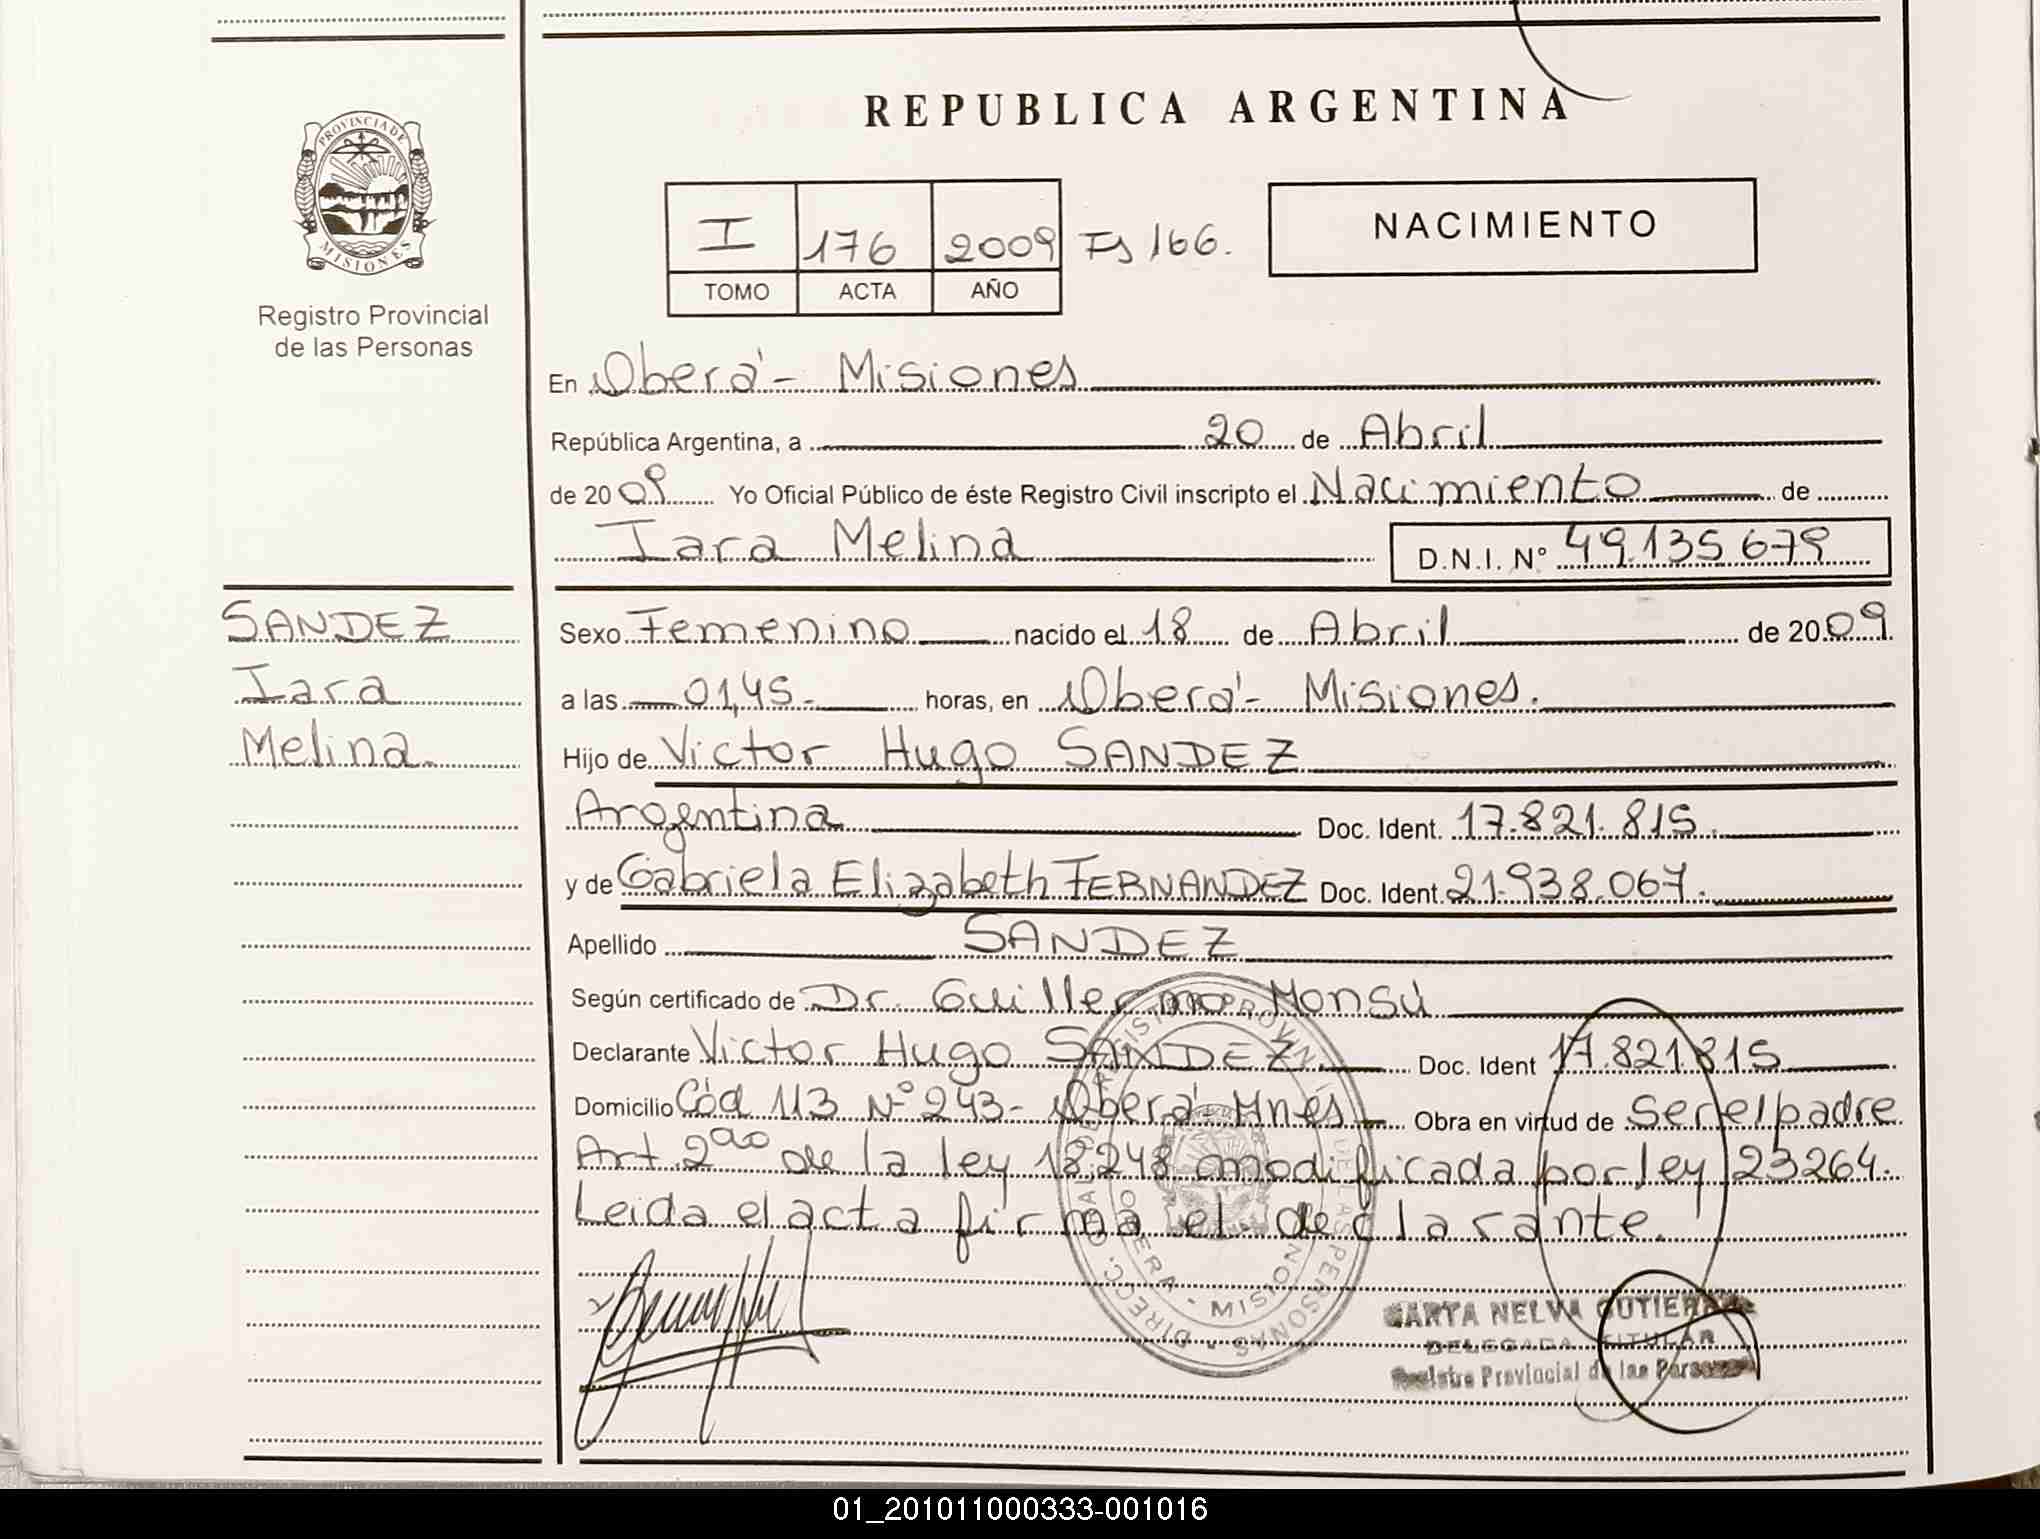 REPUBLICA ARGENTINA
PROVINCIA DE
MISIONES
Registro Provincial
de las Personas
I 176 2009 Fs 166.
TOMO ACTA AÑO
NACIMIENTO
En Oberá - Misiones
República Argentina, a 20 de Abril
de 2009 Yo Oficial Público de éste Registro Civil inscripto el Nacimiento de
Iara Melina D.N.I. Nº 49.135.679
SANDEZ
Iara
Melina.
Sexo Femenino nacido el 18 de Abril de 2009
a las 01,45.- horas, en Oberá - Misiones.
Hijo de Victor Hugo SANDEZ
Argentina Doc. Ident. 17.821.815.
y de Gabriela Elizabeth FERNANDEZ Doc. Ident. 21.938.067.
Apellido SANDEZ
Según certificado de Dr. Guillermo Monsú
Declarante Victor Hugo SANDEZ Doc. Ident 17.821.815
Domicilio Cód 113 Nº 243 - Oberá - Mnes Obra en virtud de Ser el padre
Art 2do de la ley 18.248 modificada por ley 23264.
Leida el acta firma el declarante.
DIRECC. GRAL. DE REGISTRO PROVINCIAL DE LAS PERSONAS
OBERA - MISIONES
NELVA GUTIERREZ
DELEGADA TITULAR
Registro Provincial de las Personas
01_201011000333-001016